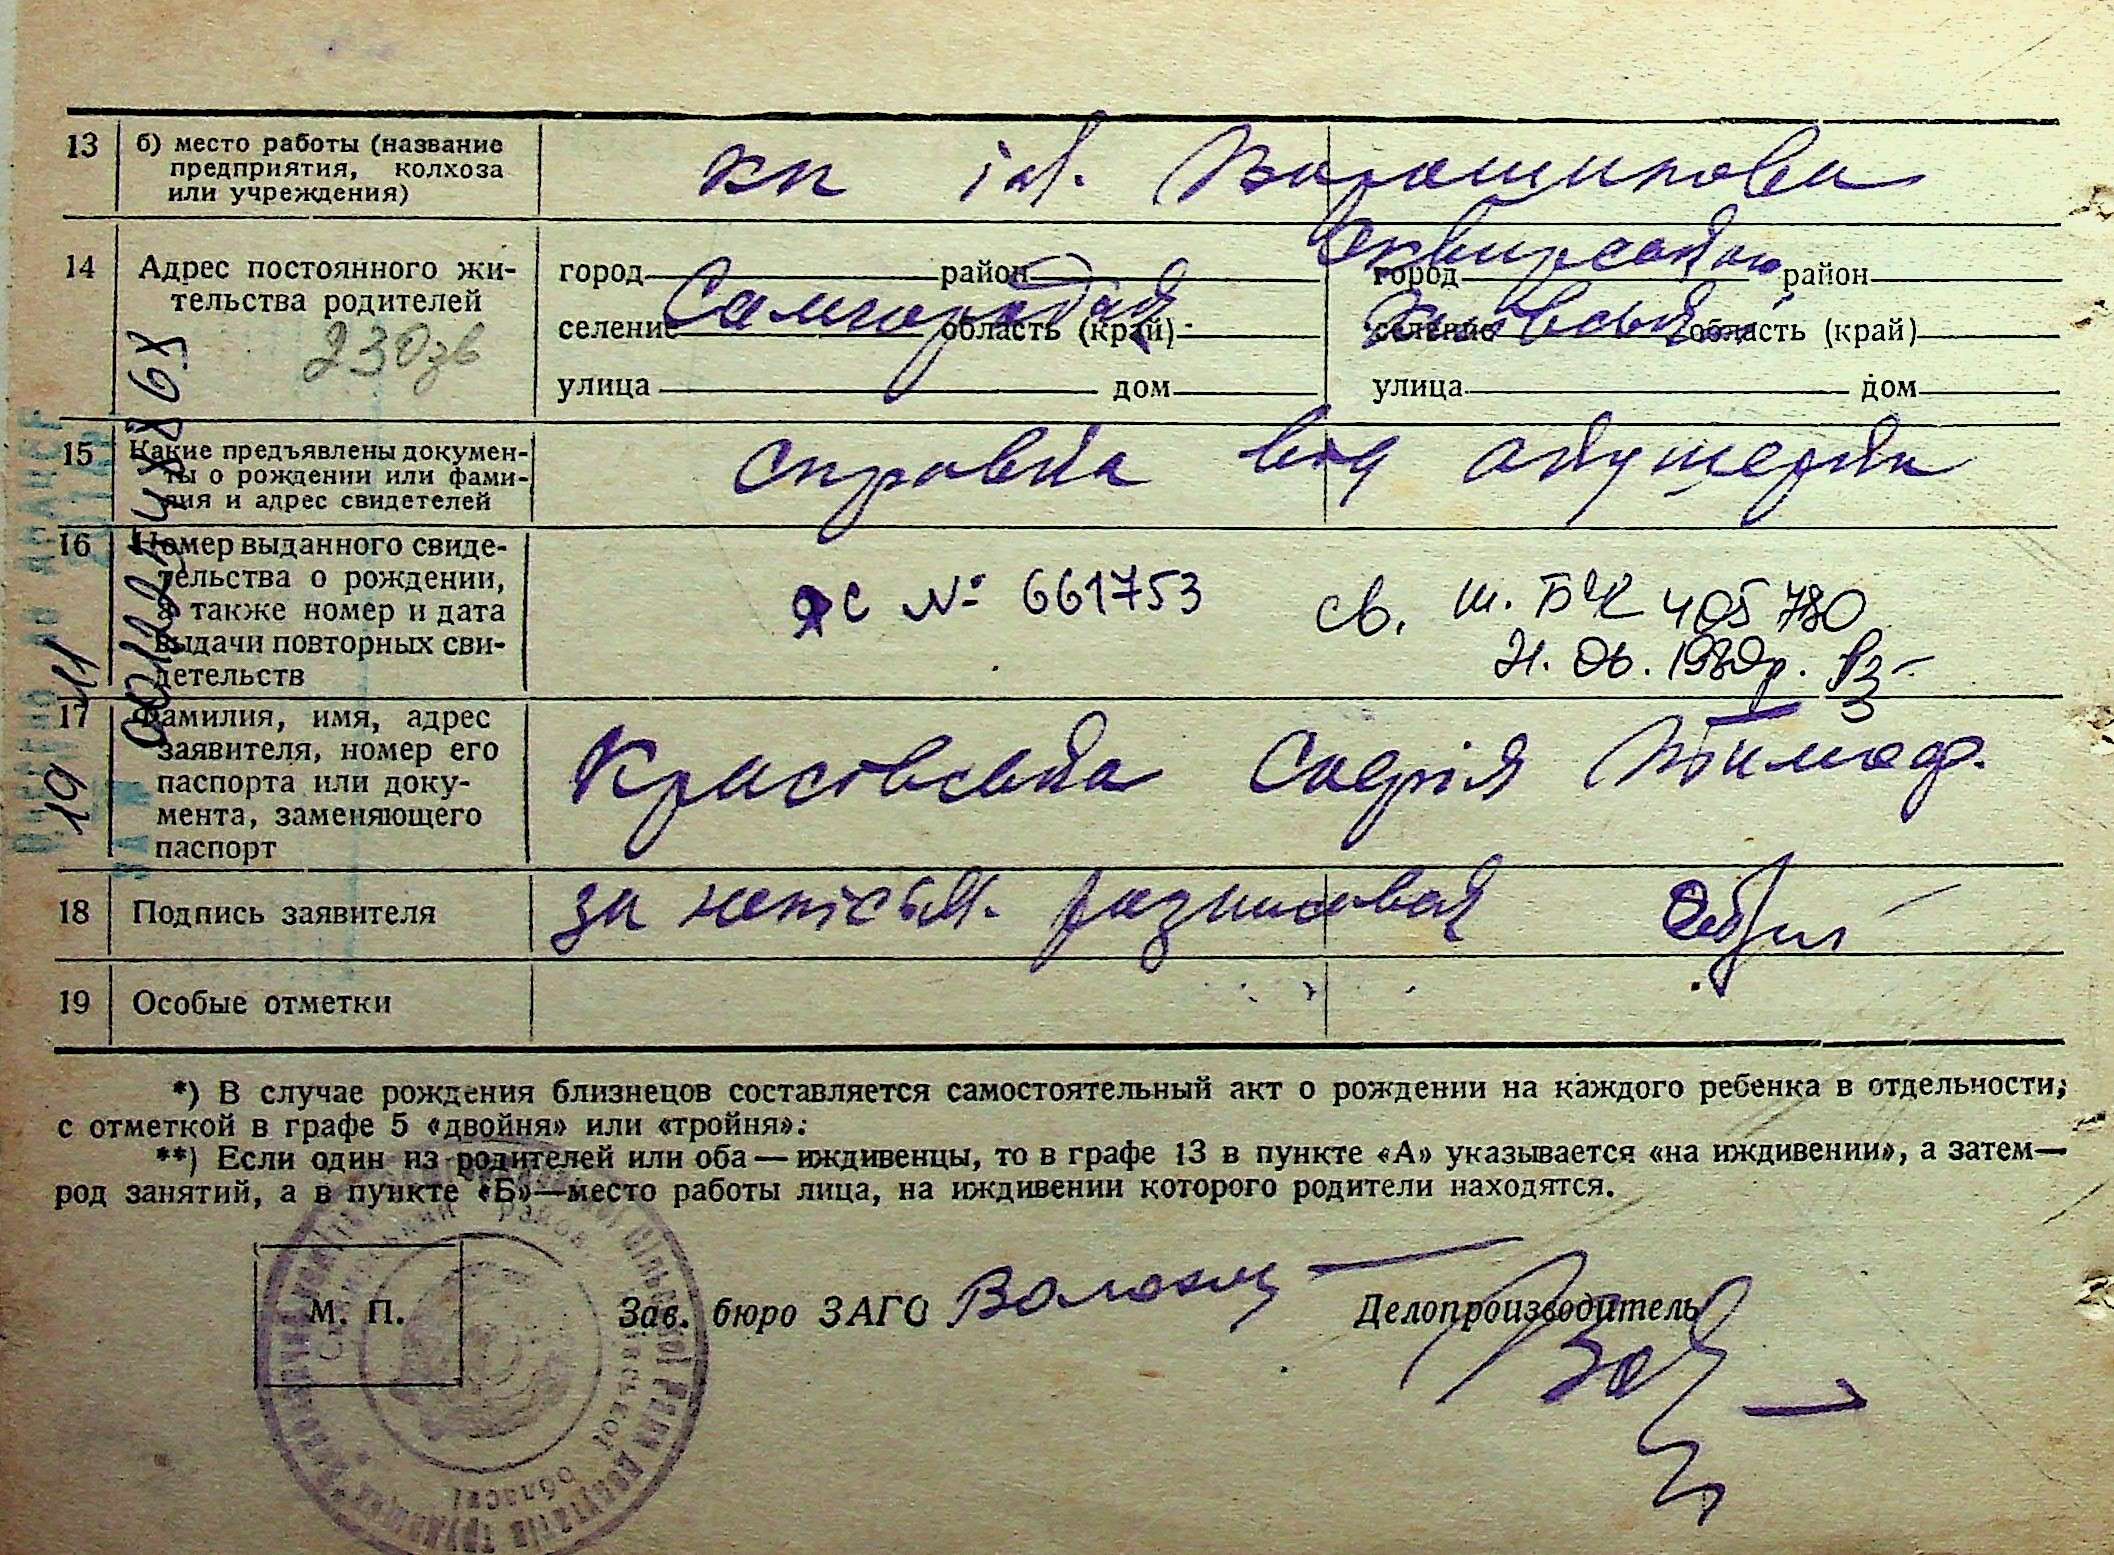 13 б) место работы (название
предприятия, колхоза
или учреждения)
кп ім. Ворошилова
14 Адрес постоянного жи-
тельства родителей
230зв
город район
Самгородок
селение область (край)
улица дом
Сквирського
город район
Київської
селение область (край)
улица дом
15 Какие предъявлены докумен-
ты о рождении или фами-
лия и адрес свидетелей
справка від акушерки
16 Номер выданного свиде-
тельства о рождении,
а также номер и дата
выдачи повторных сви-
детельств
ЯС № 661753
св. III. БЧК 405780
21. 06. 1980р.
17 Фамилия, имя, адрес
заявителя, номер его
паспорта или доку-
мента, заменяющего
паспорт
Красовська Софія Тимоф.
18 Подпись заявителя
за неписьм. розписовая
19 Особые отметки
*) В случае рождения близнецов составляется самостоятельный акт о рождении на каждого ребенка в отдельности,
с отметкой в графе 5 «двойня» или «тройня».
**) Если один из родителей или оба — иждивенцы, то в графе 13 в пункте «А» указывается «на иждивении», а затем—
род занятий, а в пункте «Б»—место работы лица, на иждивении которого родители находятся.
М. П.
Зав. бюро ЗАГС
Делопроизводитель
Сільської Ради депутатів трудящих
області